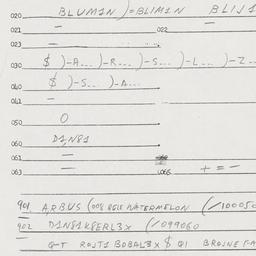 020 BLUM1N )=BLIM1N BLIJ1
021 — 022 —
023 —
030 $ )-A... )-R... )-S... )-L... )-Z..
040 $ )-S... )-A...
041 —
050 O
060 D1N81
061 —
063 — 066 + = -
901 ARBUS (008 WATERMELON (/100050
902 D1N81K8ERL3X (/099060
ROJT1 BOBAL3X $ Q1 BROJNE